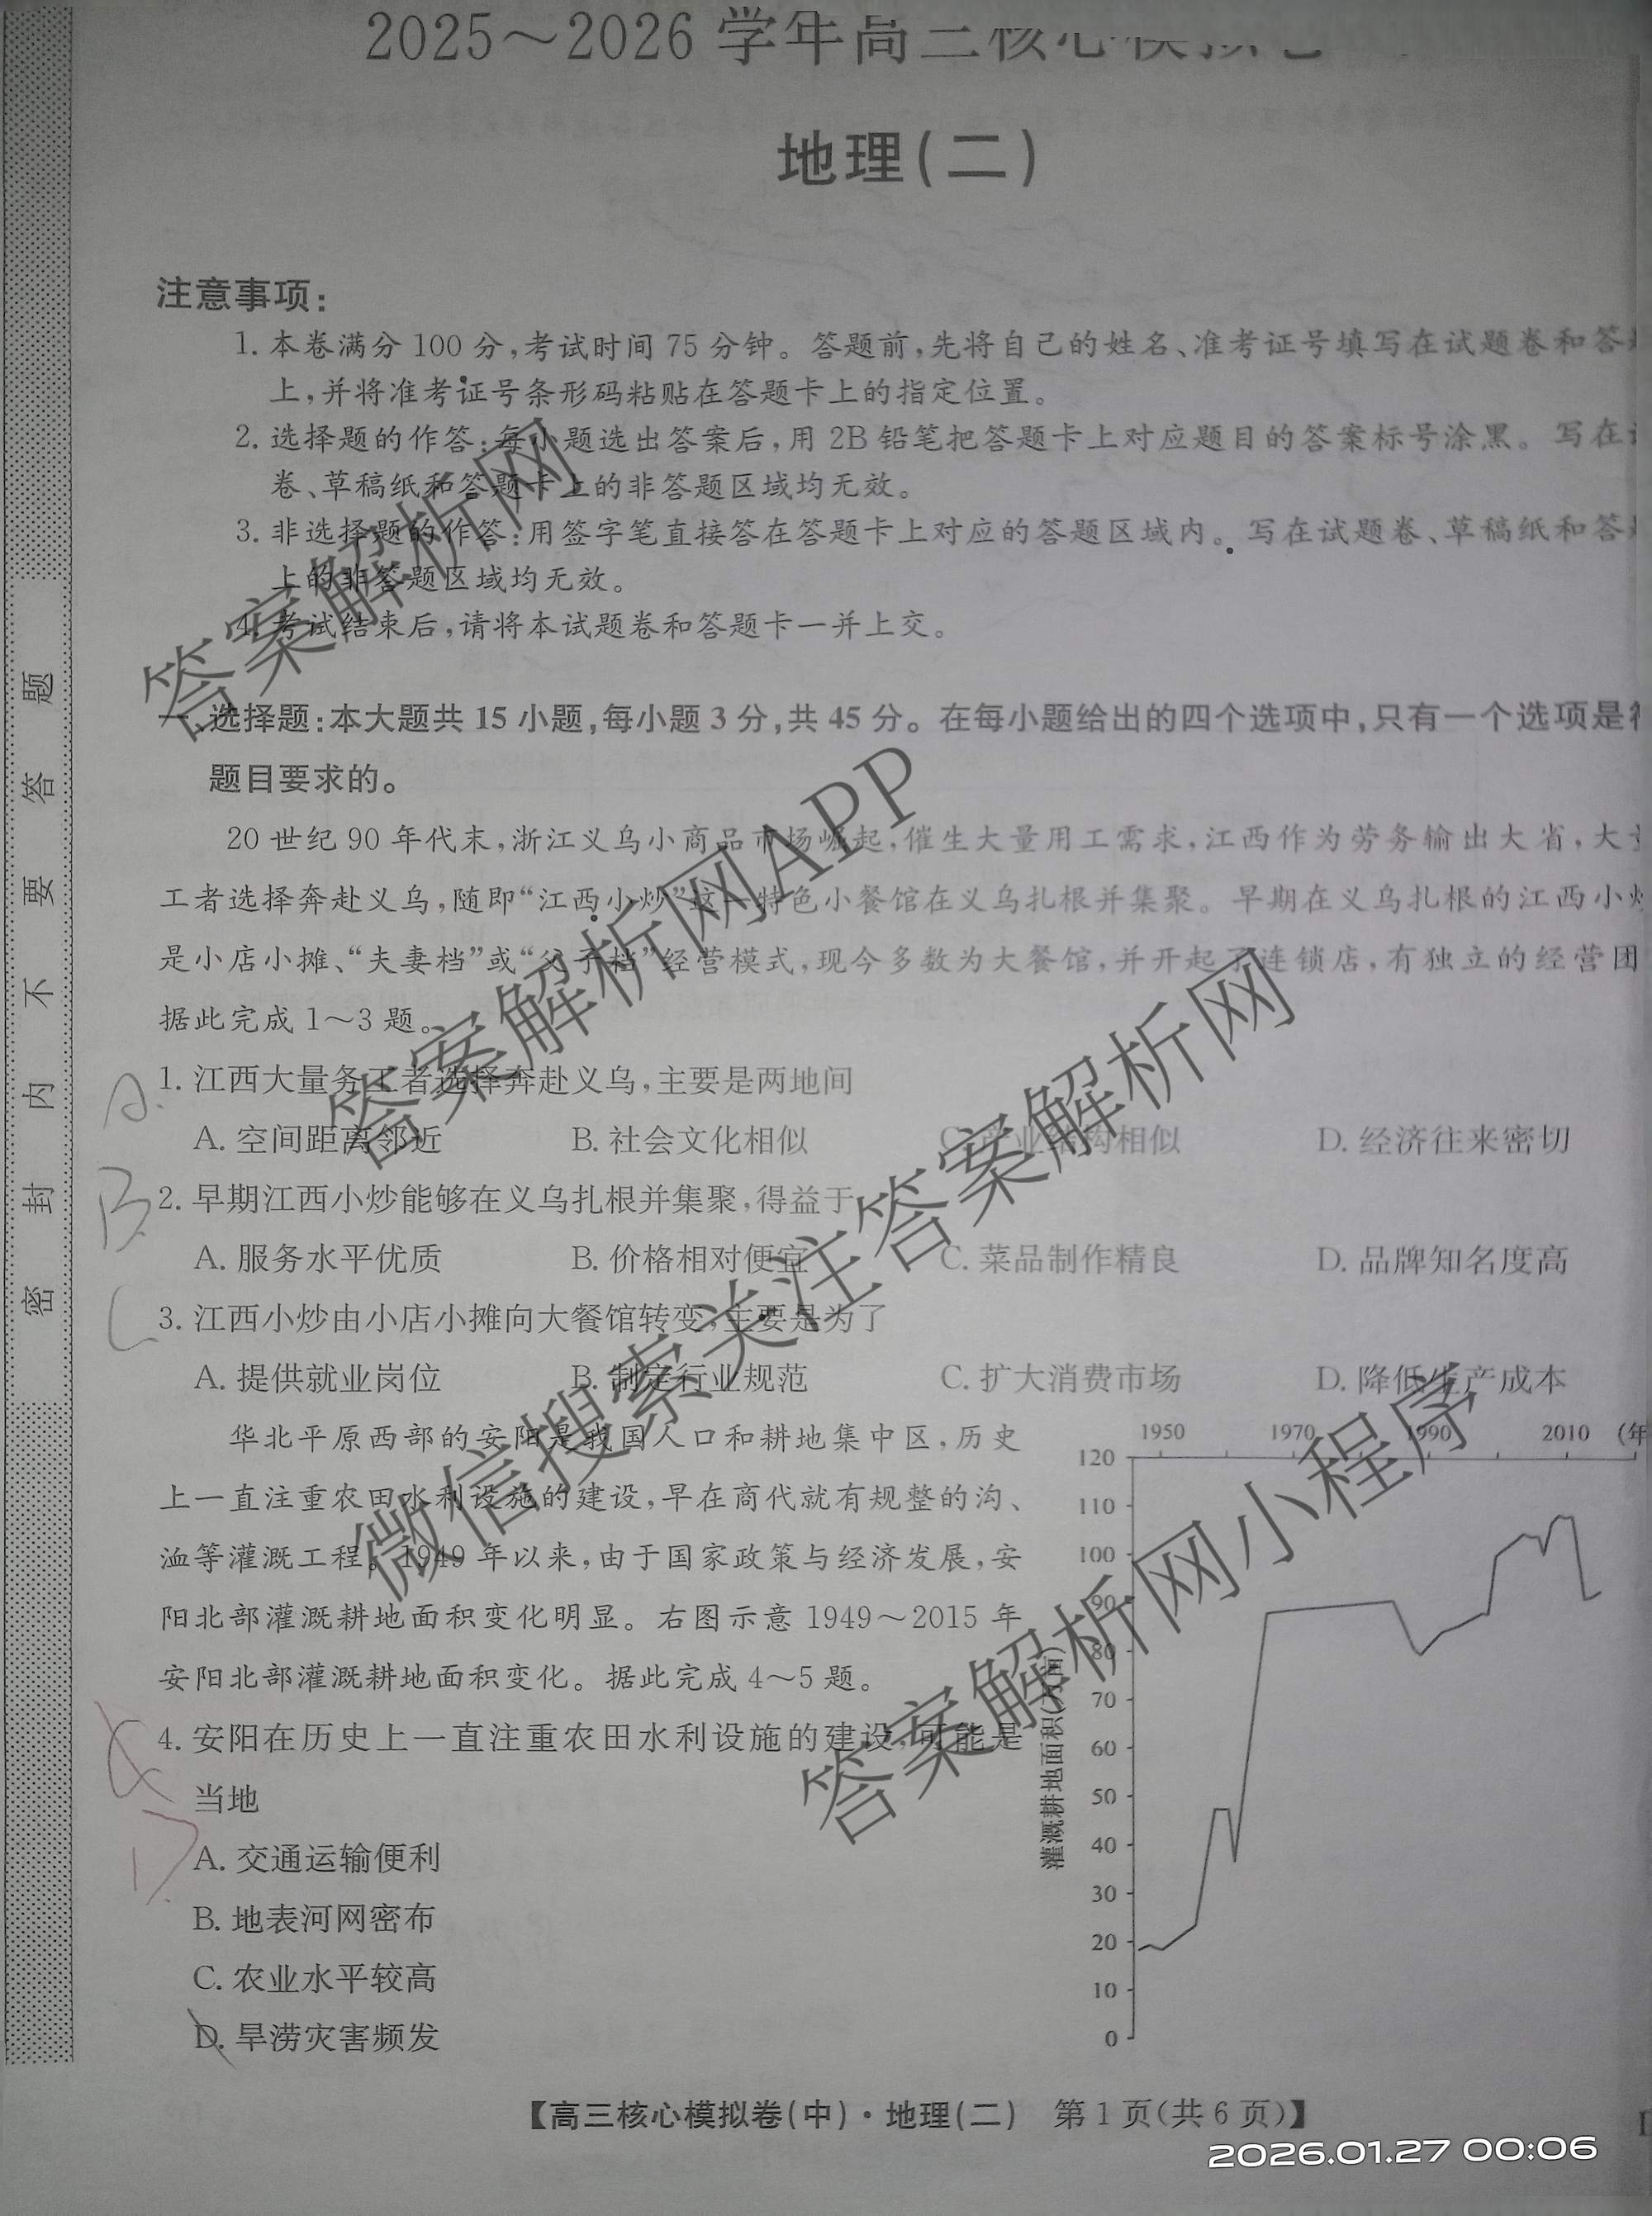 2025～2026学年高三核心模拟卷
地理(二)
注意事项:
1. 本卷满分 100 分,考试时间 75 分钟。答题前,先将自己的姓名、准考证号填写在试题卷和答
上,并将准考证号条形码粘贴在答题卡上的指定位置。
2. 选择题的作答:每小题选出答案后,用 2B 铅笔把答题卡上对应题目的答案标号涂黑。写在
卷、草稿纸和答题卡上的非答题区域均无效。
3. 非选择题的作答:用签字笔直接答在答题卡上对应的答题区域内。写在试题卷、草稿纸和答
上的非答题区域均无效。
4. 考试结束后,请将本试题卷和答题卡一并上交。
一、选择题:本大题共 15 小题,每小题 3 分,共 45 分。在每小题给出的四个选项中,只有一个选项是
题目要求的。
20 世纪 90 年代末,浙江义乌小商品市场崛起,催生大量用工需求,江西作为劳务输出大省,大
工者选择奔赴义乌,随即“江西小炒”这一特色小餐馆在义乌扎根并集聚。早期在义乌扎根的江西小
是小店小摊、“夫妻档”或“父子档”经营模式,现今多数为大餐馆,并开起了连锁店,有独立的经营团
据此完成 1～3 题。
A.
1. 江西大量务工者选择奔赴义乌,主要是两地间
A. 空间距离邻近 B. 社会文化相似 C. 产业结构相似 D. 经济往来密切
B.
2. 早期江西小炒能够在义乌扎根并集聚,得益于
A. 服务水平优质 B. 价格相对便宜 C. 菜品制作精良 D. 品牌知名度高
C.
3. 江西小炒由小店小摊向大餐馆转变,主要是为了
A. 提供就业岗位 B. 制定行业规范 C. 扩大消费市场 D. 降低生产成本
华北平原西部的安阳是我国人口和耕地集中区,历史
上一直注重农田水利设施的建设,早在商代就有规整的沟、
洫等灌溉工程。1949 年以来,由于国家政策与经济发展,安
阳北部灌溉耕地面积变化明显。右图示意 1949～2015 年
安阳北部灌溉耕地面积变化。据此完成 4～5 题。
4. 安阳在历史上一直注重农田水利设施的建设,可能是
当地
D.
A. 交通运输便利
B. 地表河网密布
C. 农业水平较高
D. 旱涝灾害频发
1950 1970 1990 2010 (年
120
110
100
90
80
70
60
50
40
30
20
10
0
灌溉耕地面积(万亩)
【高三核心模拟卷(中)·地理(二) 第 1 页(共 6 页)】
2026.01.27 00:06
密 封 内 不 要 答 题
答案解析网
答案解析网APP
微信搜索关注答案解析网
答案解析网小程序